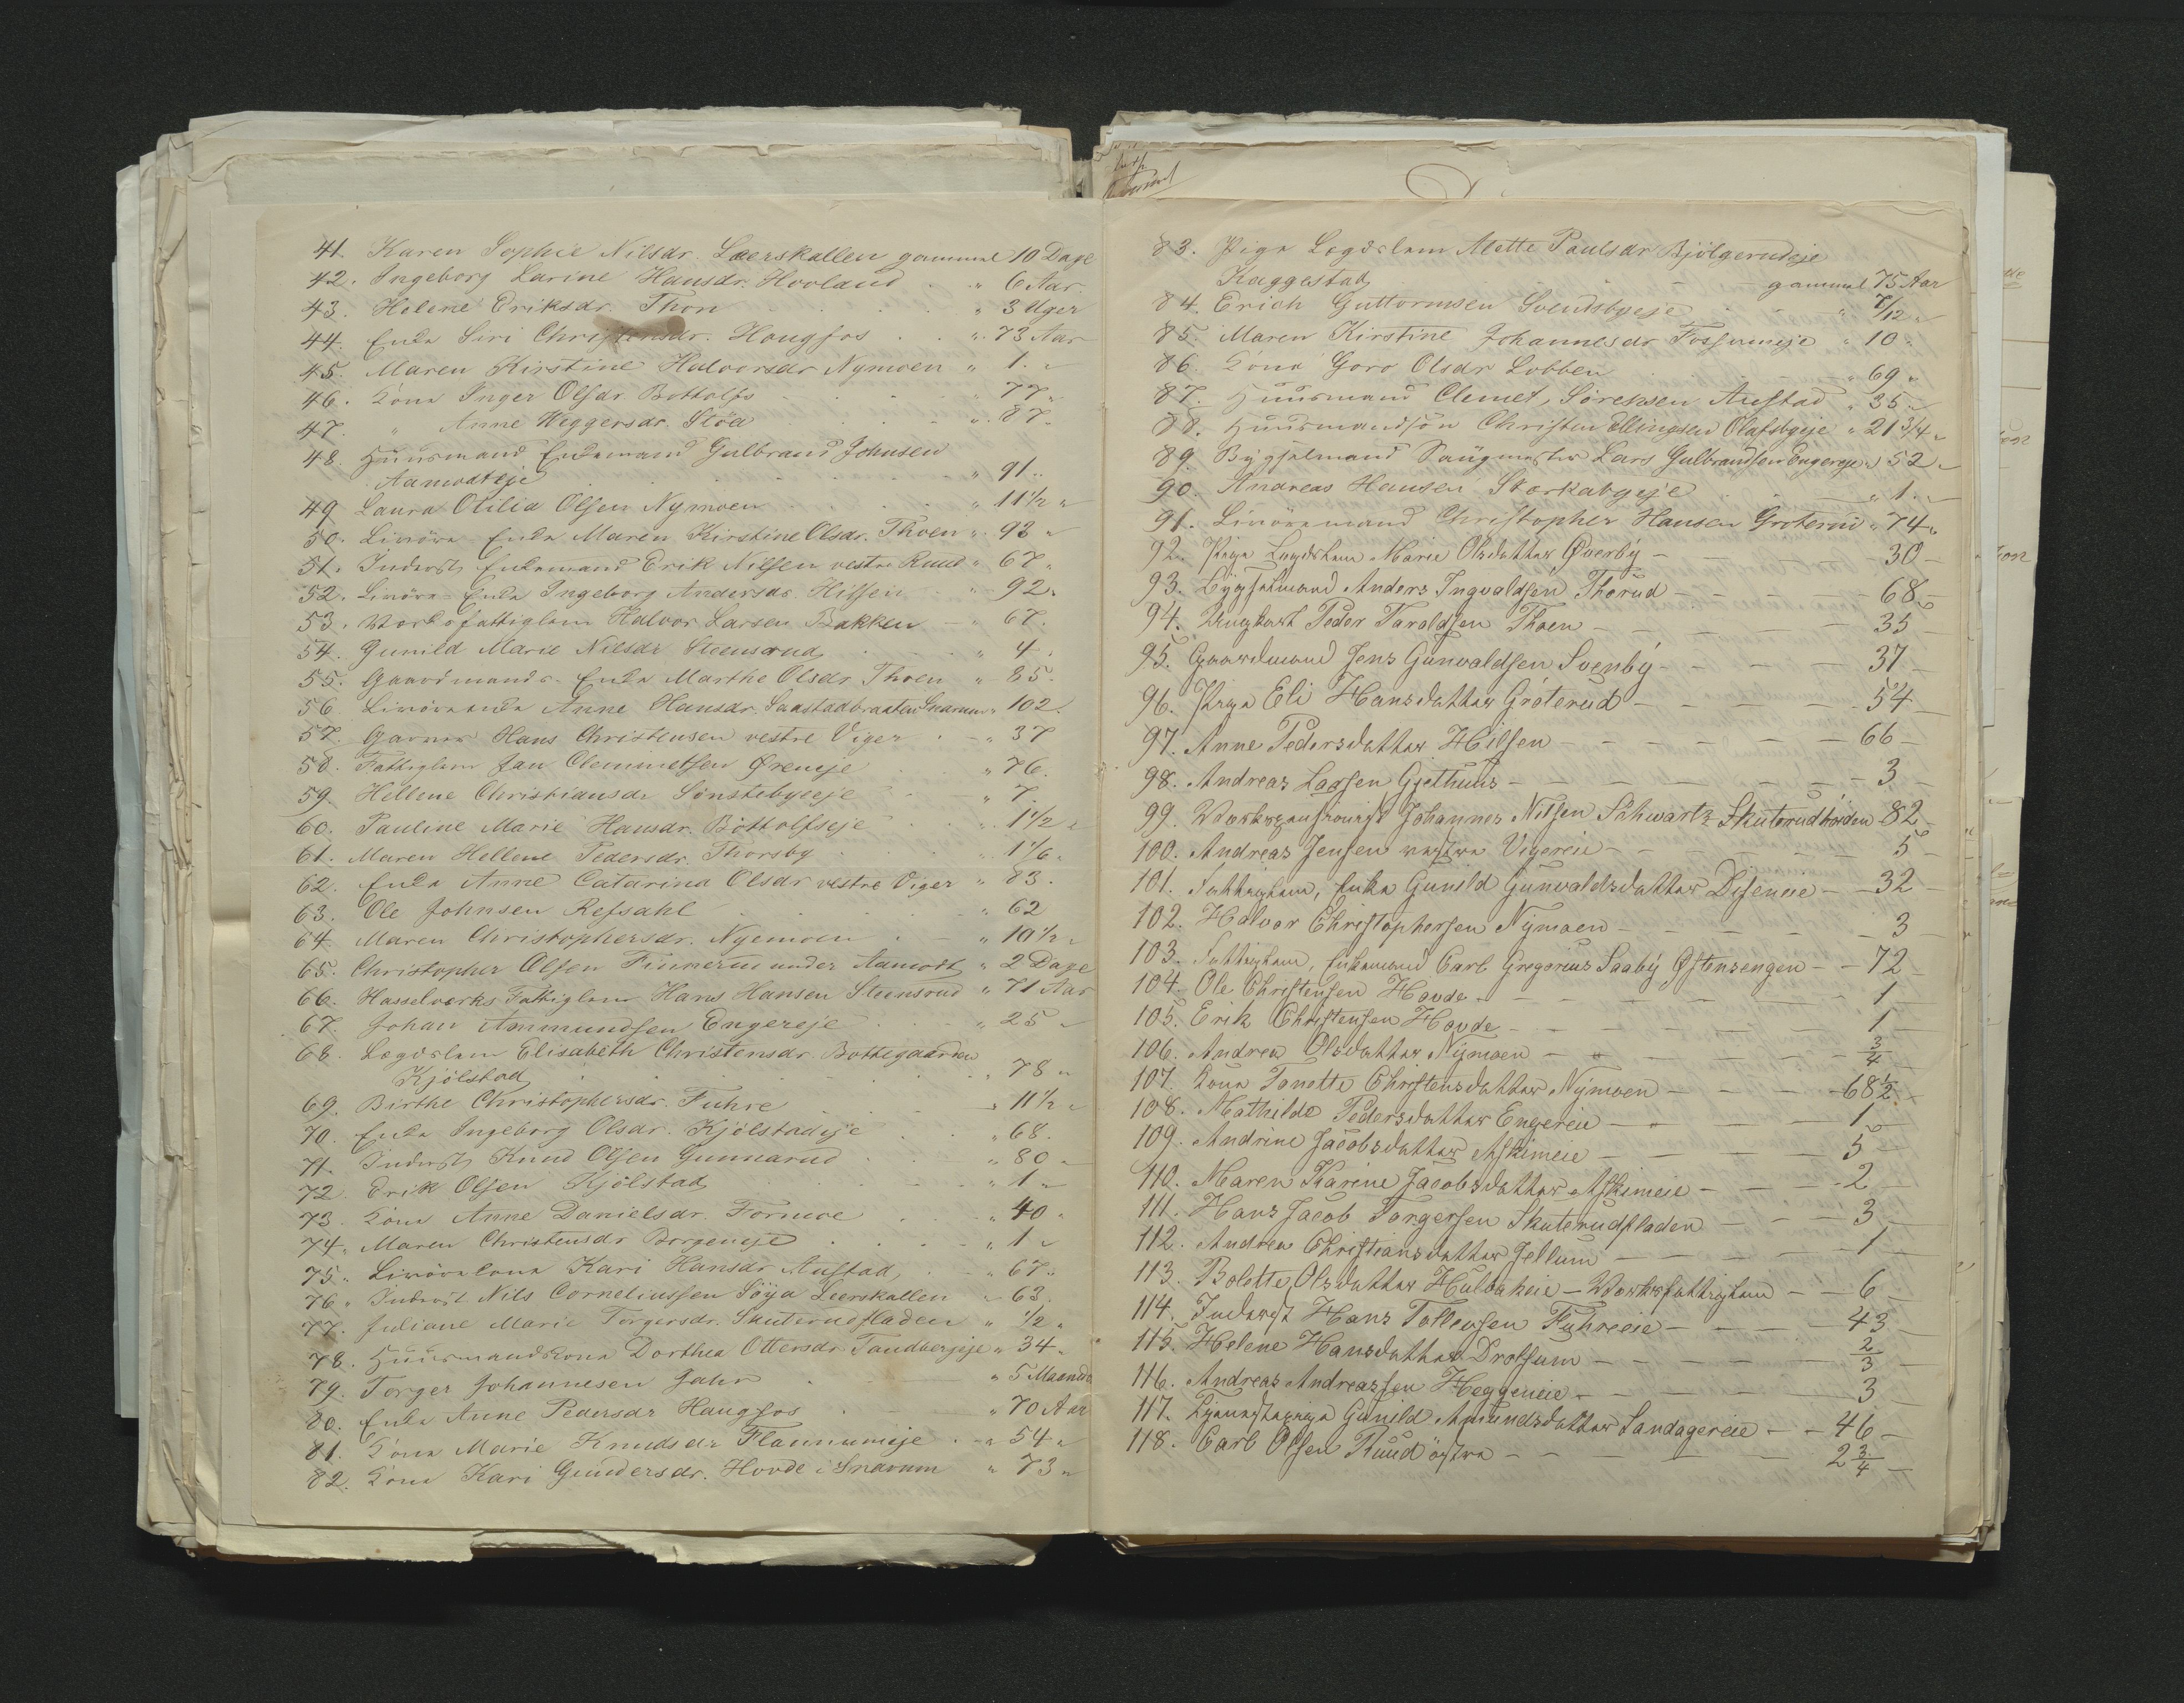 41. Karen Sophie Nilsdr. Leerskallen gammel 10 Dage
42. Ingeborg Larine Hansdr. Hovland " 6 Aar.
43. Helene Eriksdr. Thon " 3 Uger
44. Enke Siri Christensdr. Hougfos " 73 Aar
45. Maren Kirstine Halvorsdr Nymoen " 1. "
46. Kone Inger Olsdr. Bottolfs " 77 "
47. " Anne Weggersdr. Stöa " 87 "
48. Huusmand Enkemand Gulbrand Johnsen
Aamodteje " 91 "
49 Laura Otilia Olsen Nymoen " 11½ "
50. Livöre Enke Maren Kirstine Olsdr. Thoen " 93 "
51. Inderst, Enkemand Erik Nilsen vestre Ruud " 67 "
52. Livöre Enke Ingeborg Andersdr. Hilsen " 92 "
53. Værksfattiglem Halvor Larsen Bakken " 67.
54. Gunild Marie Nilsdr Steensrud " 4.
55. Gaardmands Enke Marthe Olsdr. Thoen " 85.
56. Livöreenke Anne Hansdr. Saastadbraaten Snarum " 102.
57. Garver Hans Christensen vestre Viger " 37
58. Fattiglem Jan Clemmetsen Öreneje " 76.
59. Hellene Christiansdr Sönstebyeje " 7.
60. Pauline Marie Hansdr. Bottolfseje " 1½ "
61. Maren Hellene Pedersdr. Thorsby " 1⅙ "
62. Enke Anne Catarina Olsdr vestre Viger " 83.
63. Ole Johnsen Refsahl " 62
64. Maren Christophersdr. Nyemoen " 10½ "
65. Christopher Olsen Finnerud under Aamodt " 2 Dage
66. Hasselverks Fattiglem Hans Hansen Steensrud " 71 Aar
67. Johan Ammundsen Engereje " 25 "
68. Lægdslem Elisabeth Christensdr. Bottegaarden
Kjölstad " 78 "
69. Birthe Christophersdr. Fuhre " 11½ "
70. Enke Ingeborg Olsdr. Kjölstadeje " 68.
71. Inderst, Knud Olsen Gunnerud " 80 "
72 Erik Olsen Kjölstad " 1 "
73. Kone Anne Danielsdr. Formoe " 40 "
74 " Maren Christensdr Borgeneje " 1 "
75 " Livörekone Kari Hansdr Austad " 67 "
76 " Inderst Nils Corneliussen Söya Leerskallen " 63.
77. Juliane Marie Torgersdr. Skuterudfladen " ½ "
78. Huusmandskone Dorthea Ottersdr Tandbergeje " 34 "
79. Torger Johannesen Jahr " 5 Maaneder
80. Enke Anne Pedersdr Haugfos " 70 Aar
81. Kone Marie Knudsdr Flannumeje " 54 "
82. Kone Kari Gundersdr. Hovde i Snarum " 73 "
83. Pige Lægdslem Mette Paulsdr Bjölgerudeje
Kaggestad gammel 75 Aar
84. Erich Guttormsen Svendsbyeje " 7/12 "
85. Maren Kirstine Johannesdr Fossumeje " 10 "
86. Kone Goro Olsdr Lobben " 69 "
87. Huusmand Clemet Sörensen Austad " 35 "
88. Huusmandsön Christen Ellingsen Olafsbyeje " 21¾ "
89. Bygselmand Saugmester Lars Gulbrandsen Engereje " 52 "
90. Andreas Hansen Storkabyeje " 1. "
91. Livöremand Christopher Hansen Groterud " 74 "
92. Pige Lægdslem Marie Olsdatter Øverby — 30 —
93. Bygselmand Anders Ingvaldsen Thorud — 68 —
94. Ungkarl Peder Taraldsen Thoen — 35 —
95. Gaardmand Jens Gunvaldsen Svenby — 37 —
96. Pige Eli Hansdatter Groterud — 54 —
97. Anne Pedersdatter Hilsen — 66 —
98. Andreas Larsen Gjethuus — 3 —
99. Værkspensionist Johannes Nilsen Schwartz Skuterudhöiden 82 —
100. Andreas Jensen vestre Vigereie — 5 —
101. Fattiglem, Enke Gunild Gunvaldsdatter Diseneie — 32 —
102. Halvor Christophersen Nymoen — 3 —
103. Fattiglem, Enkemand Carl Gregorius Saaby Östensengen — 72 —
104. Ole Christensen Hovde — 1 —
105. Erik Christensen Hovde — 1 —
106. Andrea Olsdatter Nymoen — ¾ —
107. Kone Tonette Christensdatter Nymoen — 68½ —
108. Mathilde Pedersdatter Engereie — 1 —
109. Andrine Jacobsdatter Askimeie — 5 —
110. Maren Karine Jacobsdatter Askimeie — 2 —
111. Hans Jacob Torgersen Skuterudfladen — 3 —
112. Andrea Christiansdatter Jellum — 1 —
113. Bolette Olsdatter Hulbakeie — Værksfattiglem — 6 —
114. Inderst Hans Tollevsen Fuhreeie — 43 —
115. Helene Hansdatter Drolsum — ⅔ —
116. Andreas Andreassen Heggeneie — 3 —
117. Tjenestepige Gunild Amundsdatter Sandagereie — 46 —
118. Carl Olsen Ruud östre — 2¾ —